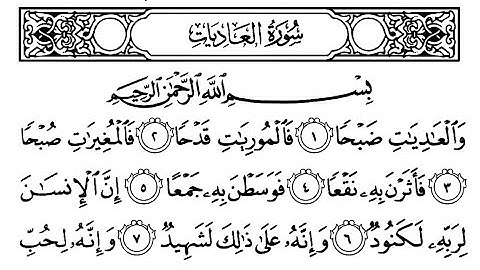 سُورَةُ العَادِيَاتِ
بِسۡمِ ٱللَّهِ ٱلرَّحۡمَٰنِ ٱلرَّحِيمِ
وَٱلۡعَٰدِيَٰتِ ضَبۡحٗا ١ فَٱلۡمُورِيَٰتِ قَدۡحٗا ٢ فَٱلۡمُغِيرَٰتِ صُبۡحٗا
٣ فَأَثَرۡنَ بِهِۦ نَقۡعٗا ٤ فَوَسَطۡنَ بِهِۦ جَمۡعًا ٥ إِنَّ ٱلۡإِنسَٰنَ
لِرَبِّهِۦ لَكَنُودٞ ٦ وَإِنَّهُۥ عَلَىٰ ذَٰلِكَ لَشَهِيدٞ ٧ وَإِنَّهُۥ لِحُبِّ